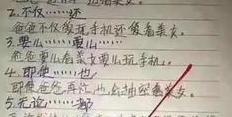 2.不仅……还
爸爸不仅缓玩手机还缓看美女。
3.要么……要么……
爸爸要么看美女要么玩手机。
4.即使……也
即使爸爸再忙,也抽空看美女。
5.无论……都